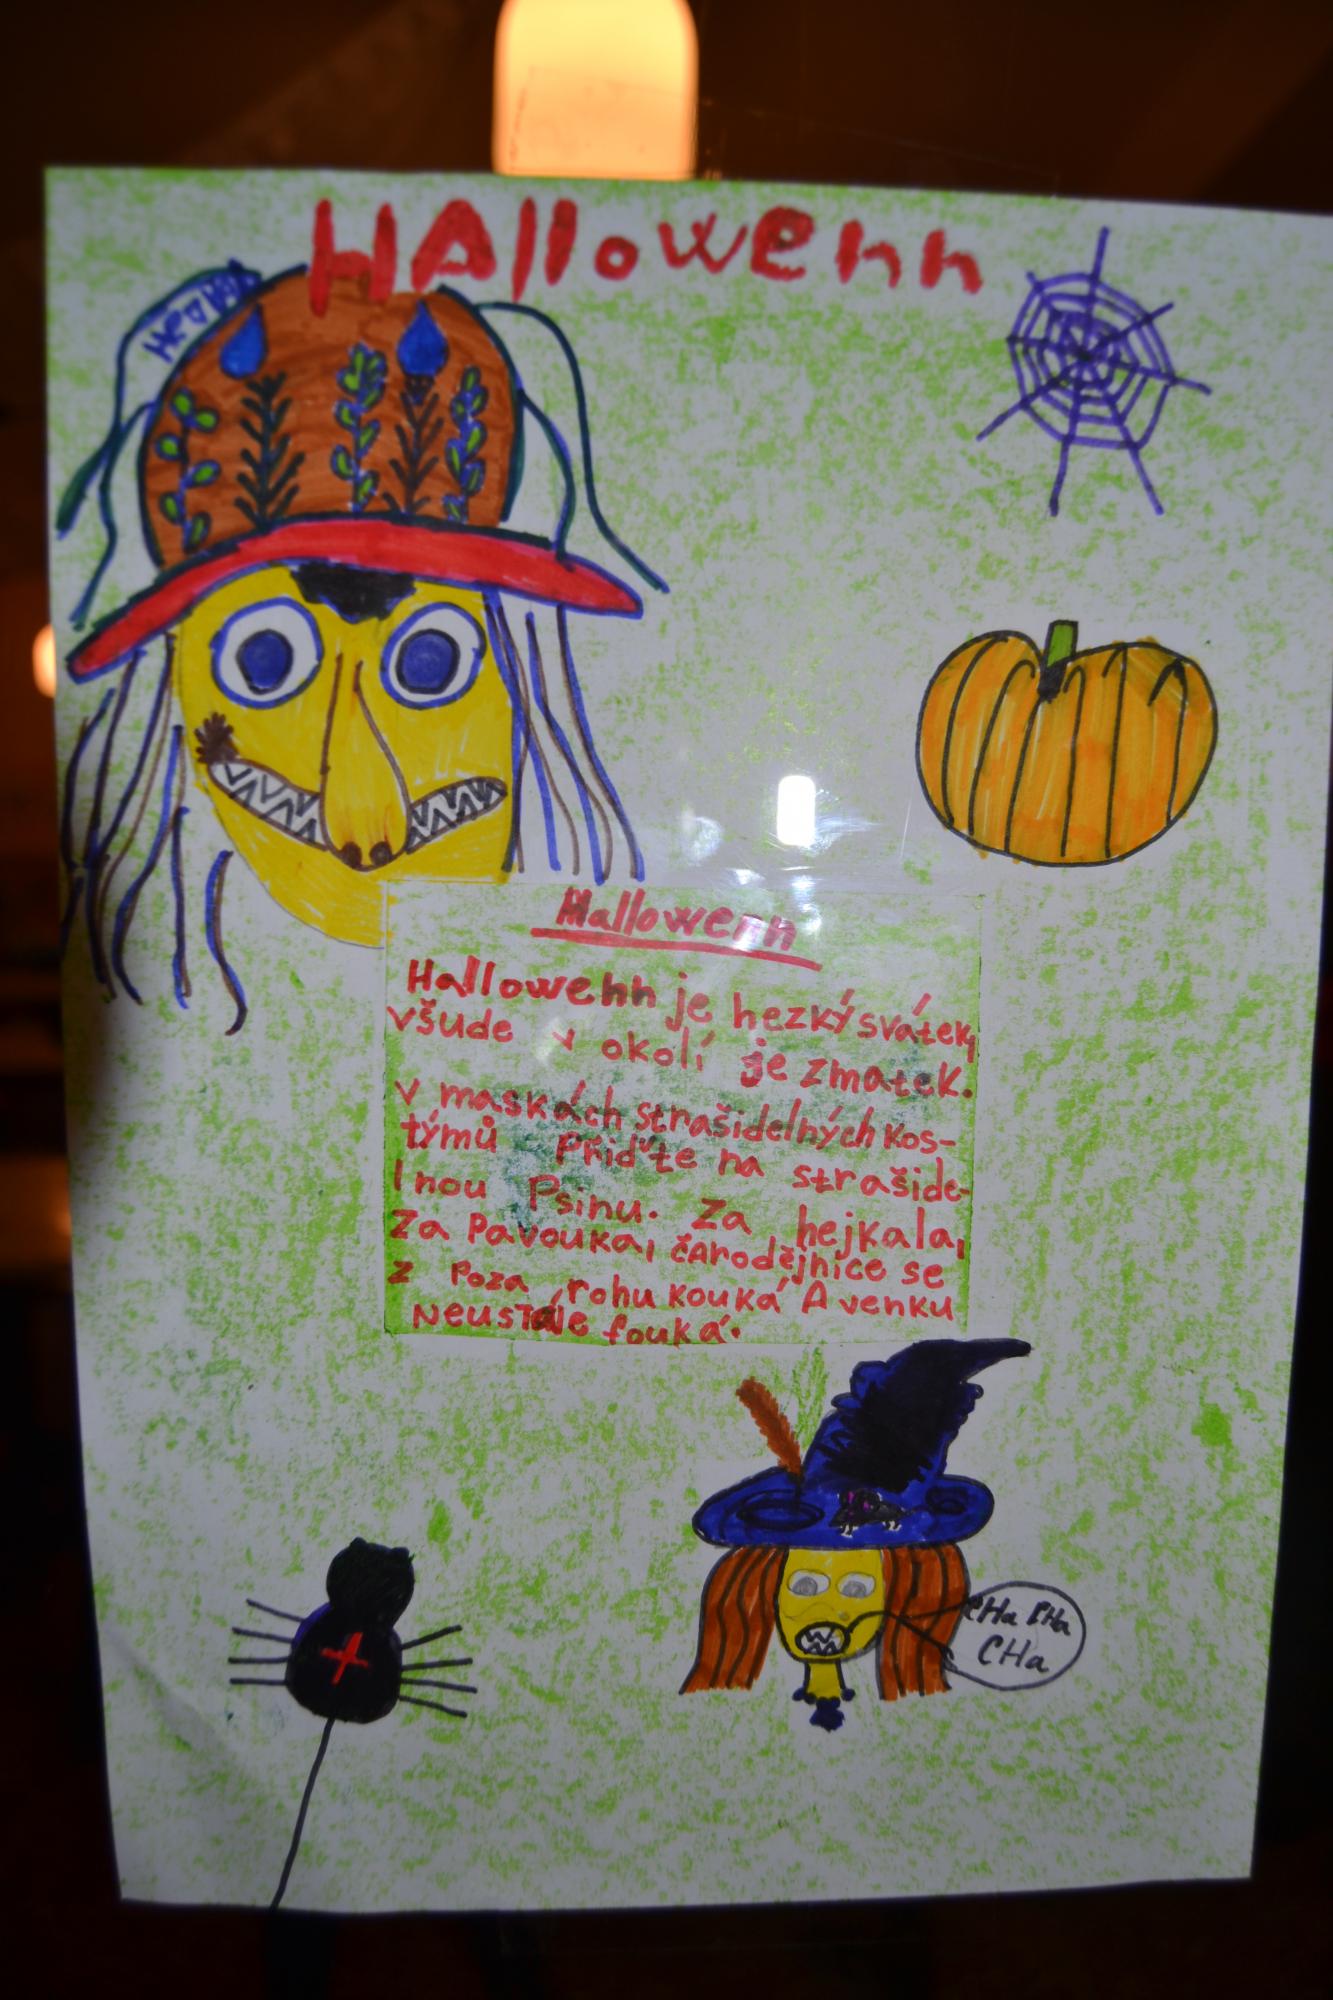 HAllowenn
Hallowenn
Hallowenn je hezký svátek,
všude v okolí je zmatek.
v maskách strašidelných kos-
týmů Přiďte na strašide-
lnou Psinu. Za hejkala,
za Pavouka, čArodějnice se
z Poza rohu kouká A venku
Neustále fouká.
CHa CHa
CHa